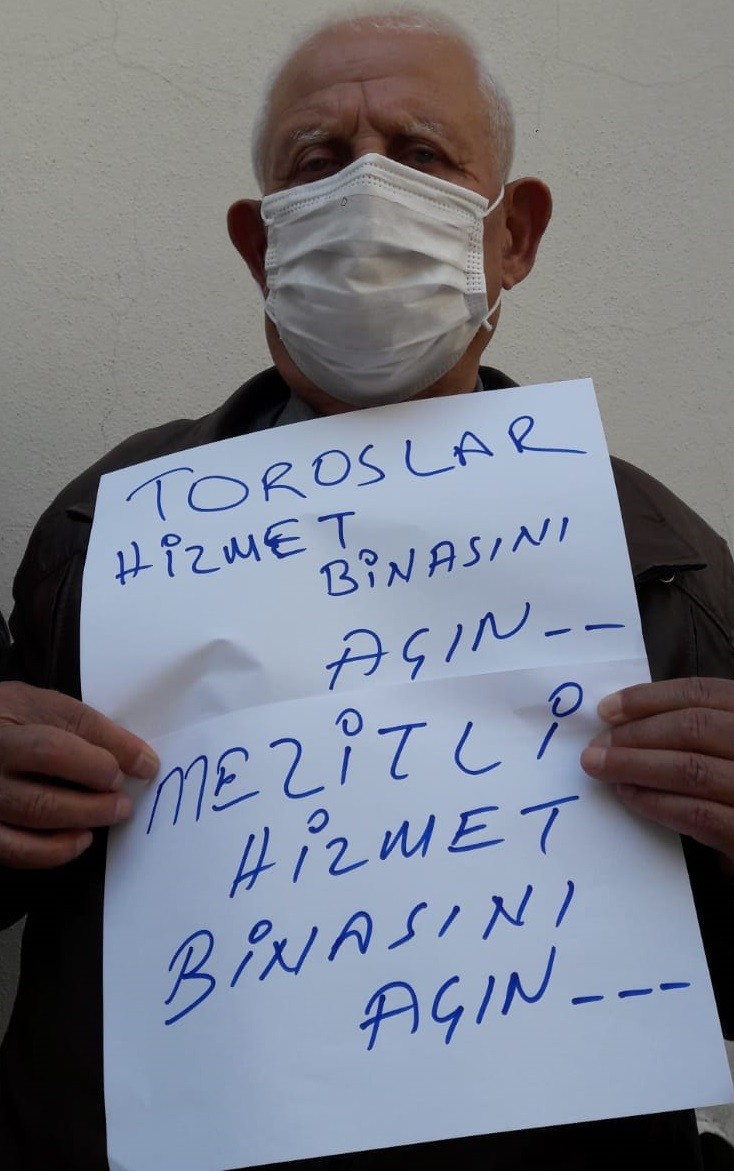 TOROSLAR
HİZMET
BİNASINI
AÇIN---
MEZİTLİ
HİZMET
BİNASINI
AÇIN---